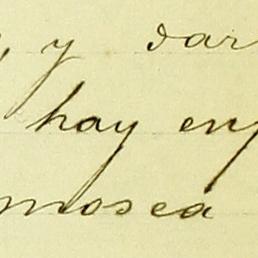 y dar
hay en
mosca